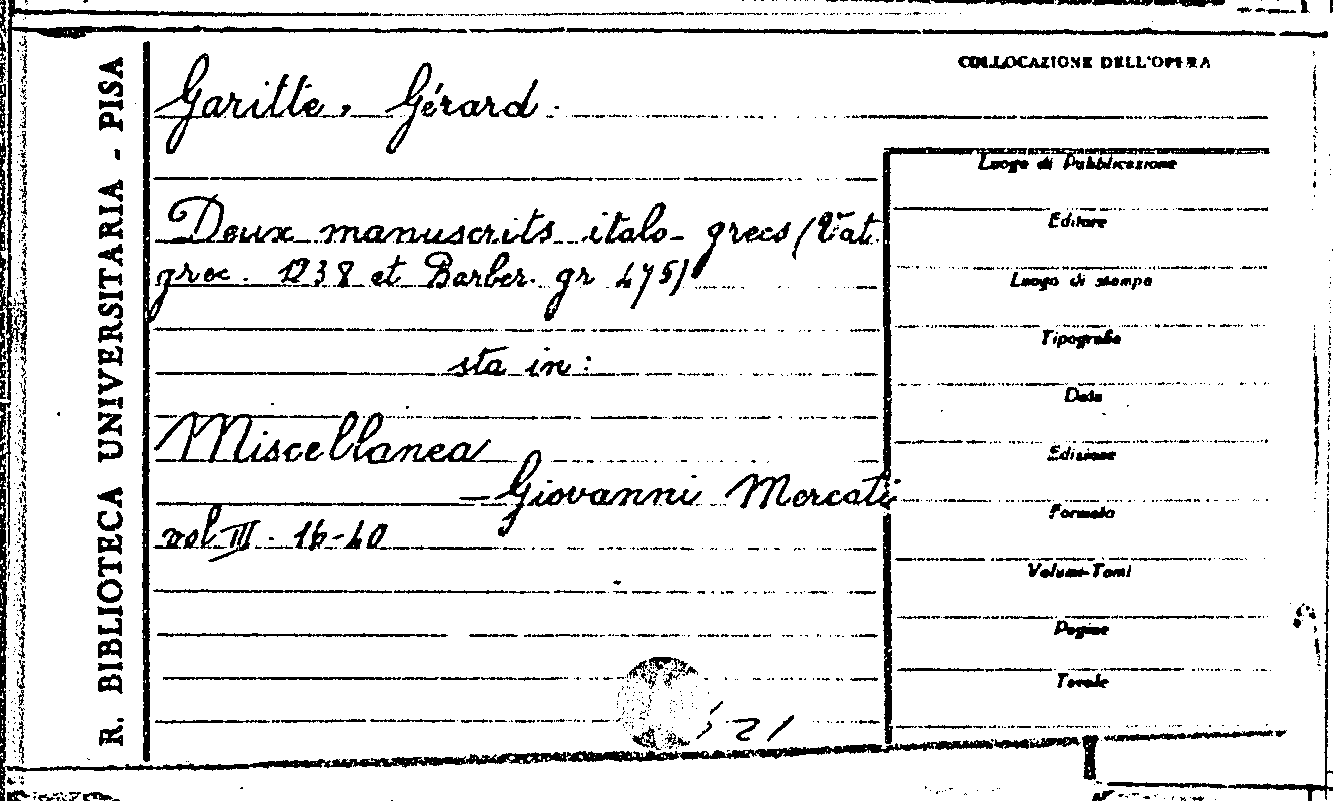 R. BIBLIOTECA UNIVERSITARIA - PISA
COLLOCAZIONE DELL'OPERA
Garitte, Gérard.
Deux manuscrits italo-grecs (Vat.
graec. 1238 et Barber. gr 475)
sta in:
Miscellanea
- Giovanni Mercati
vol III. 16-40
Luogo di Pubblicazione
Editore
Luogo di stampa
Tipografia
Data
Edizione
Formato
Volumi-Tomi
Pagine
Tavole
21